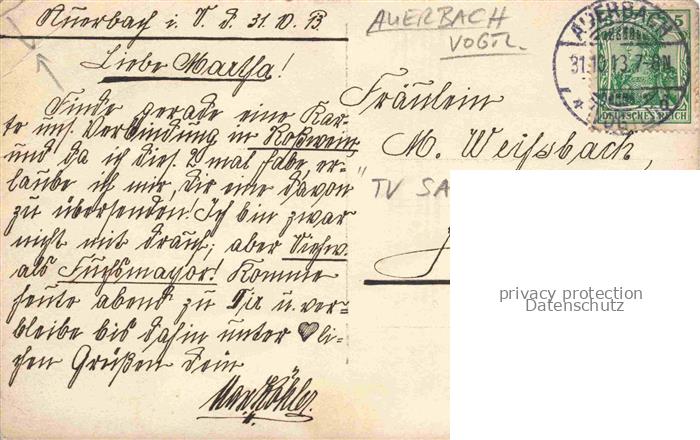 Auerbach i. V. d. 31.10.13.
Liebe Martha!
Finde gerade eine Kar-
te uns. Verbindung in Roßwein
und da ich dies. 2 mal habe, er-
laube ich mir, Dir eine davon
zu übersenden! Ich bin zwar
nicht mit drauf; aber
als Fuchsmajor! Komme
heute abend zu Dir u. ver-
bleibe bis dahin unter ♥li-
chen Grüßen Dein
Max Köhler.
AUERBACH
VOGTL.
AUERBACH
31.10.13.7-8N.
5
DEUTSCHES REICH
Fräulein
M. Weißbach,
"TV SA
privacy protection
Datenschutz